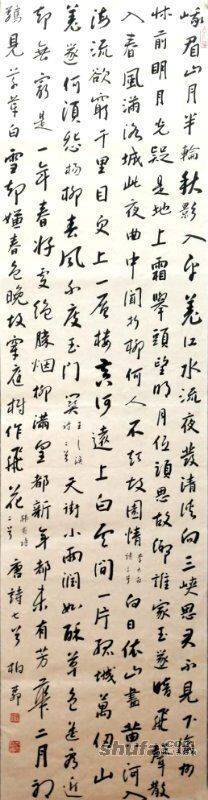 峨眉山月半輪秋影入平羌江水流夜發清溪向三峽思君不見下渝州
牀前明月光疑是地上霜舉頭望明月低頭思故鄉誰家玉篴暗飛聲散
入春風滿洛城此夜曲中聞折柳何人不起故園情 李白詩三首 白日依山盡黃河入
海流欲窮千里目更上一層樓黃河遠上白雲間一片孤城萬仞山
羌篴何須怨楊柳春風不度玉門關 王之渙詩二首 天街小雨潤如酥草色遙看近
却無最是一年春好處絕勝烟柳滿皇都新年都未有芳華二月初
驚見草芽白雪却嫌春色晚故穿庭樹作飛花 韓愈詩二首 唐詩七首 柏